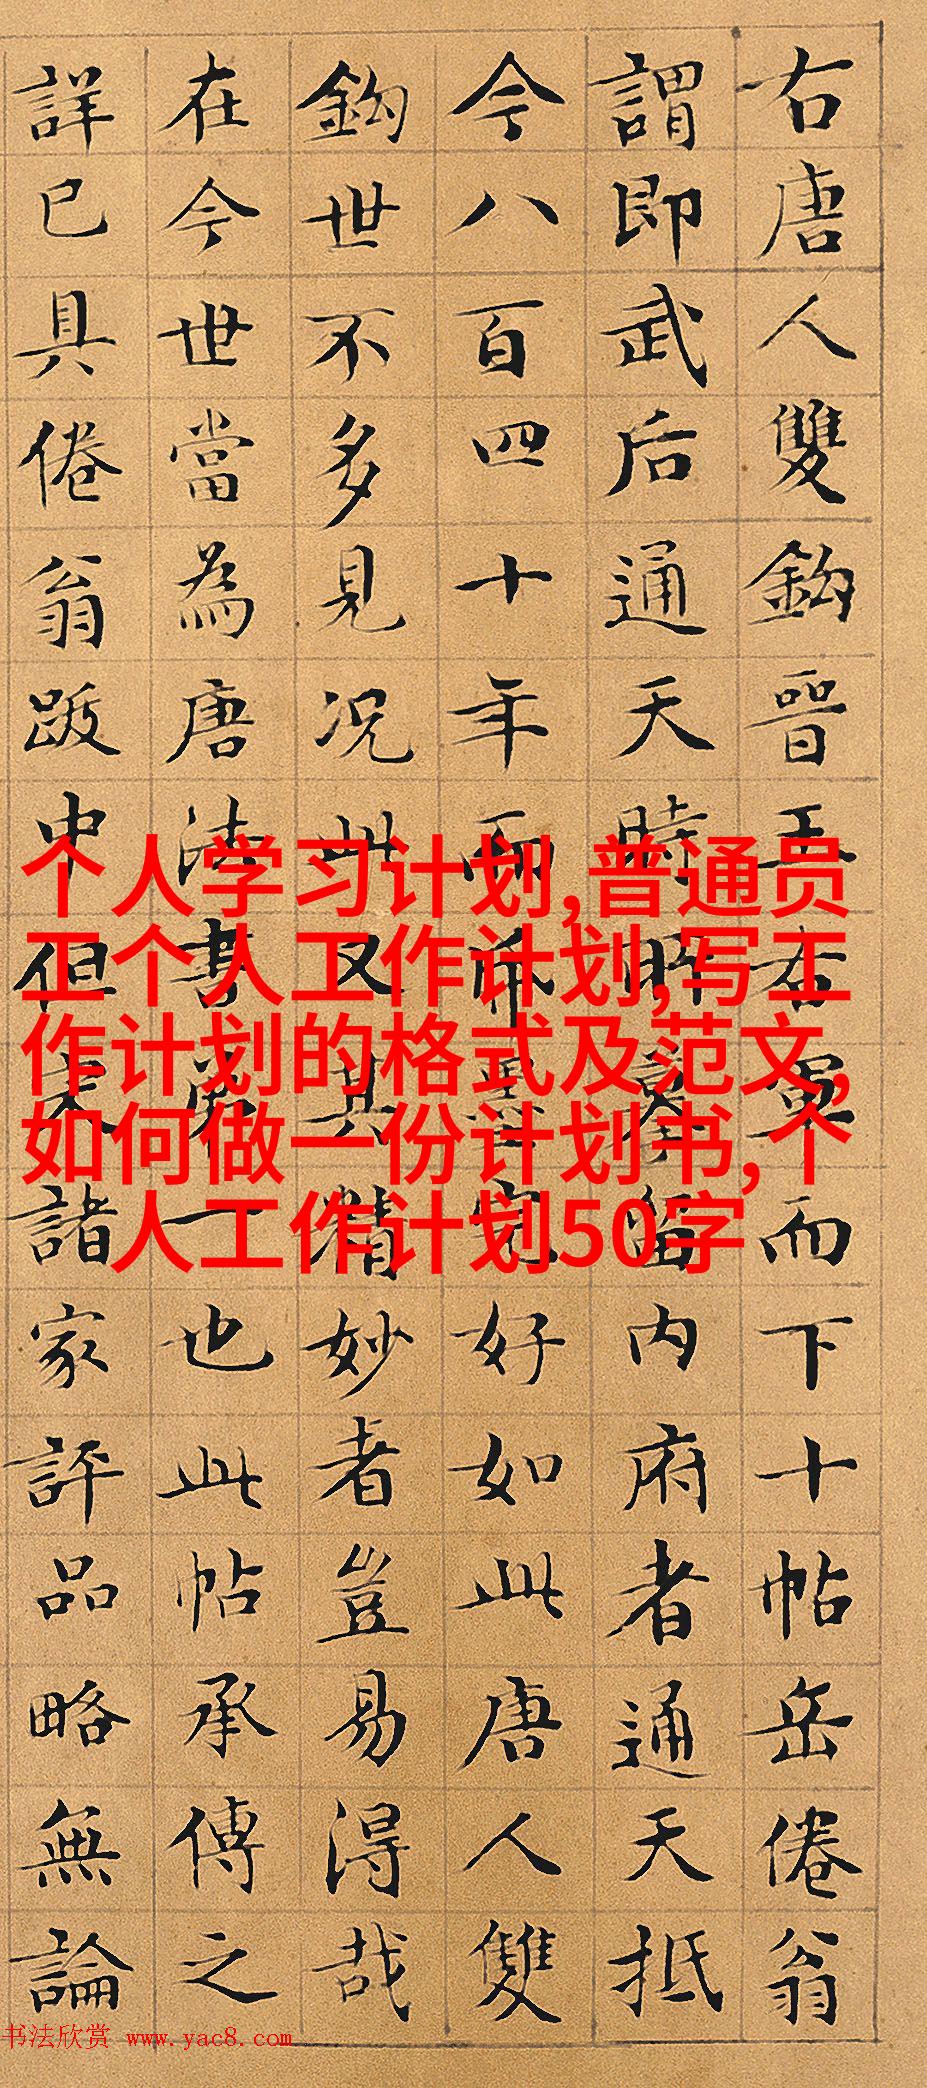 右唐人雙鉤晉王右軍而下十帖岳倦翁
謂即武后通天時所摹留內府者通天抵
今八百四十年而紙墨完好如此唐人雙
鉤世不多見況此又其精妙者豈易得哉
在今世當為唐法書第一也此帖承傳之
詳已具倦翁跋中但諸家評品略無論
个人学习计划,普通员
工个人工作计划,写工
作计划的格式及范文,
如何做一份计划书,个
人工作计划50字
书法欣赏 www.yac8.com